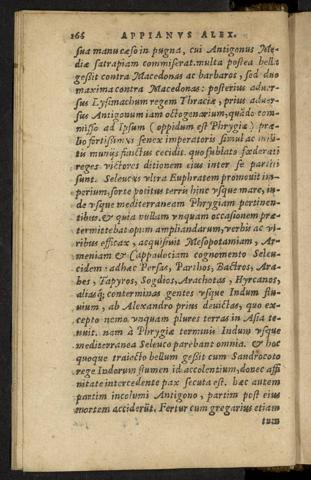 166 APPIANVS ALEX.
sua manu cæso in pugna, cui Antigonus Me-
diæ satrapiam commiserat. multa postea bella
gessit contra Macedonas ac barbaros, sed duo
maxima contra Macedonas: posterius aduer-
sus Lysimachum regem Thraciæ, prius aduer-
sus Antigonum iam octogenarium, quãdo com-
misso ad Ipsum (oppidum est Phrygiæ) præ-
lio fortissimus senex imperatoris simul ac mili-
tis munijs functus cecidit. quo sublato fœderati
reges victores ditionem eius inter se partiti
sunt. Seleucus vltra Euphratem promouit im-
perium, sorte potitus terris hinc vsque mare, in-
de vsque mediterraneam Phrygiam pertinen-
tibus. & quia nullam vnquam occasionem præ-
termittebat opum ampliandarum, verbis ac vi-
ribus efficax, acquisiuit Mesopotamiam, Ar-
meniam & Cappadociam cognomento Seleu-
cidem: adhæc Persas, Parthos, Bactros, Ara-
bes, Tapyros, Sogdios, Arachotas, Hyrcanos,
aliasq; conterminas gentes vsque Indum flu-
uium, ab Alexandro prius deuictas, quo ex-
cepto nemo vnquam plures terras in Asia te-
nuit. nam à Phrygiæ terminis Indum vsque
mediterranea Seleuco parebant omnia. & hoc
quoque traiecto bellum gessit cum Sandrocoto
rege Indorum flumen id accolentium, donec affi
nitate intercedente pax secuta est. hæc autem
partim incolumi Antigono, partim post eius
mortem acciderũt. Fertur cum gregarius etiam
tum